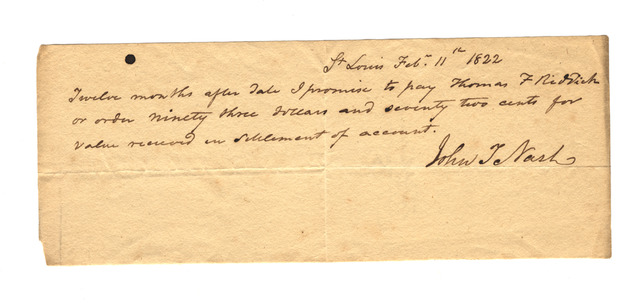 St Louis Feby. 11th 1822
Twelve months after date I promise to pay Thomas F Riddick
or order ninety three dollars and seventy two cents for
value received in settlement of account.
John T Nash